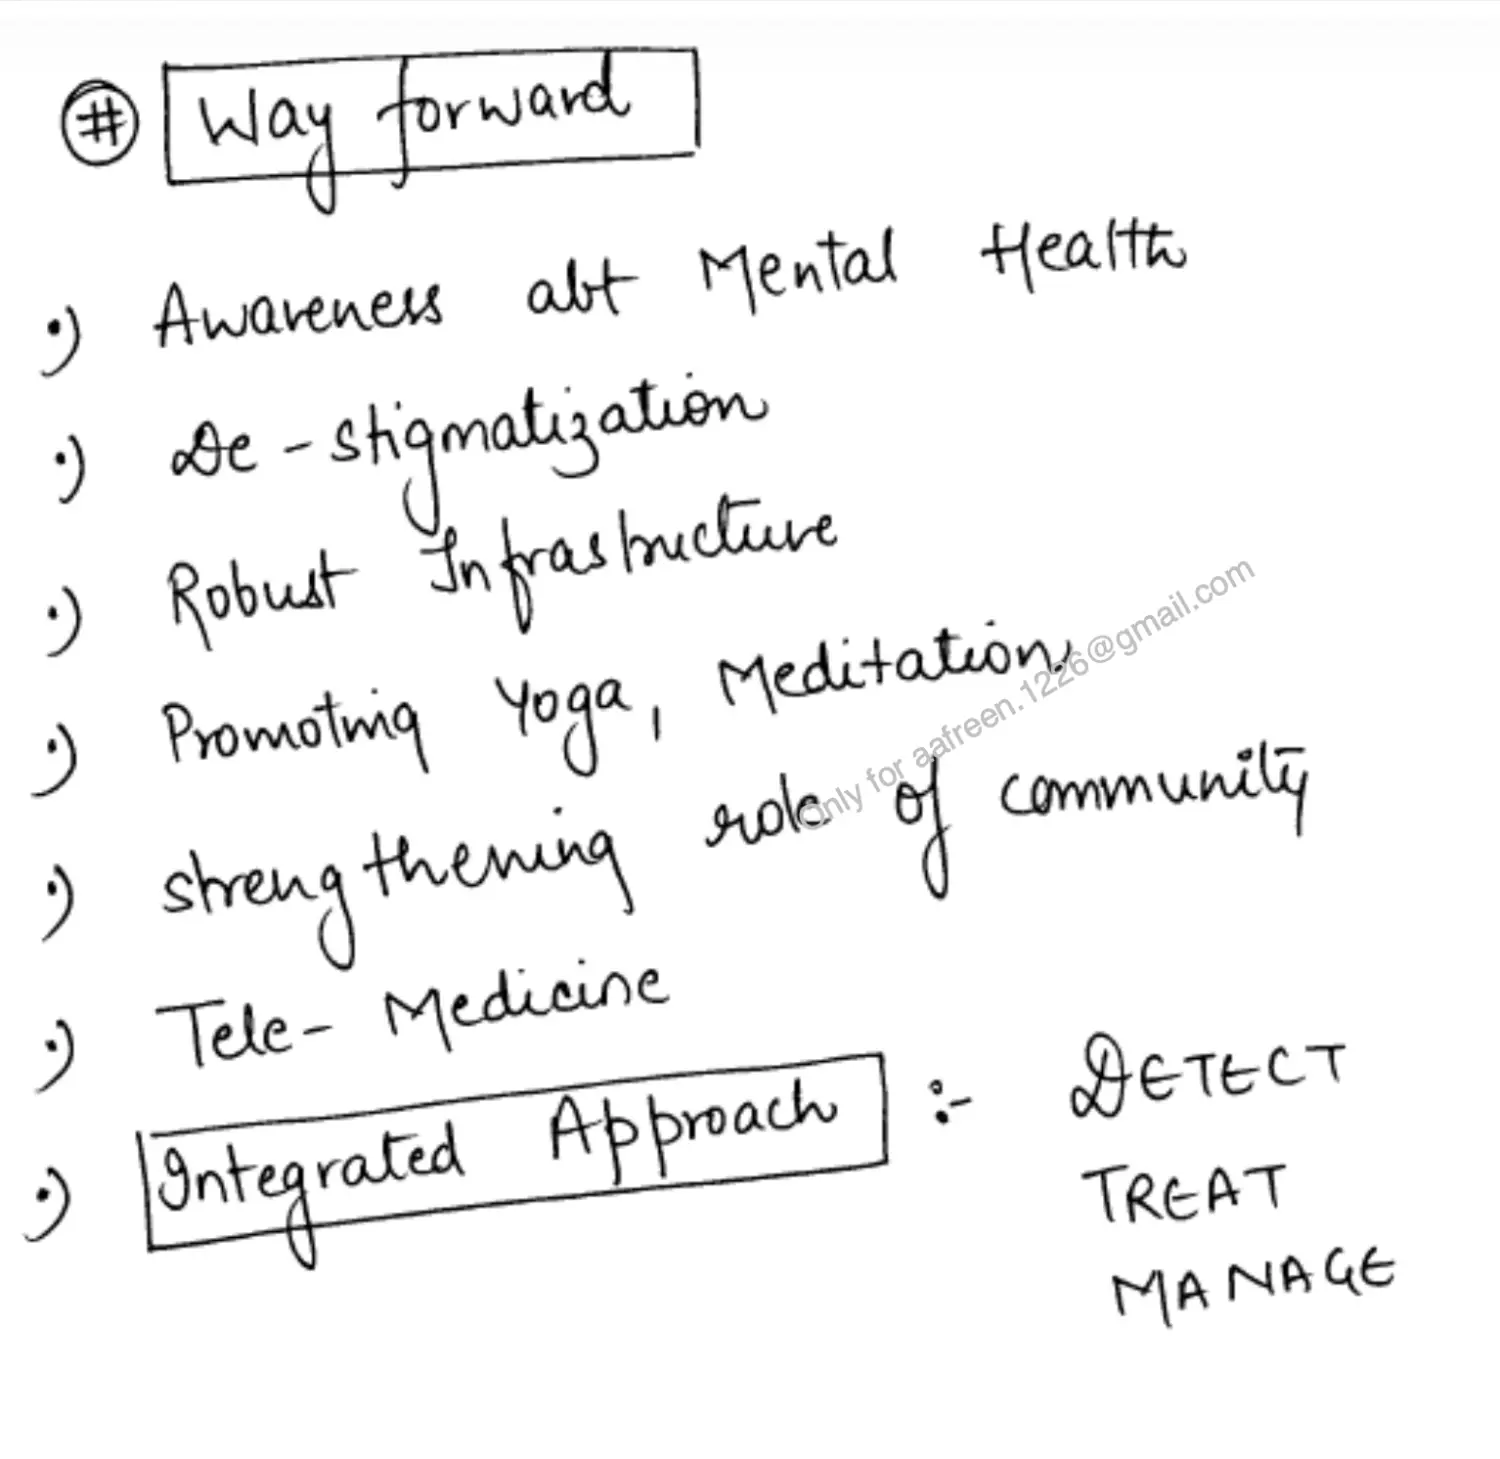 # Way forward
•) Awareness abt Mental Health
•) De-stigmatization
•) Robust Infrastructure
•) Promoting Yoga, Meditation
•) strengthening role of community
•) Tele-Medicine
•) Integrated Approach :- DETECT
TREAT
MANAGE
Only for aafreen.1226@gmail.com